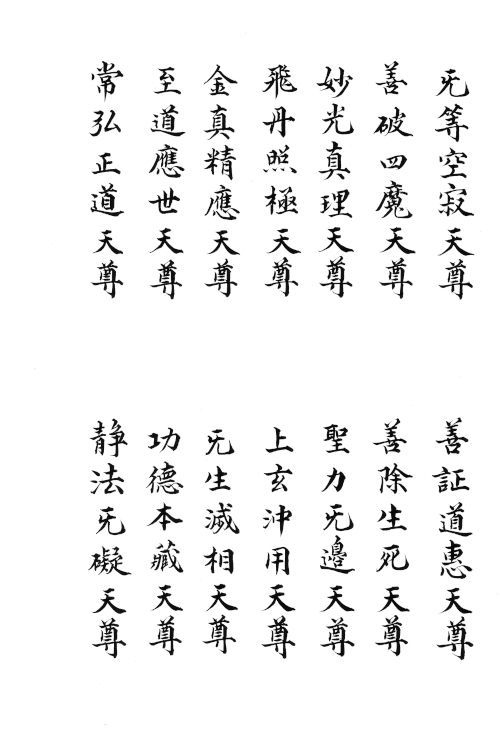 无等空寂天尊
善破四魔天尊
妙光真理天尊
飛丹照極天尊
金真精應天尊
至道應世天尊
常弘正道天尊
善証道惠天尊
善除生死天尊
聖力无邊天尊
上玄沖用天尊
无生滅相天尊
功德本藏天尊
靜法无礙天尊